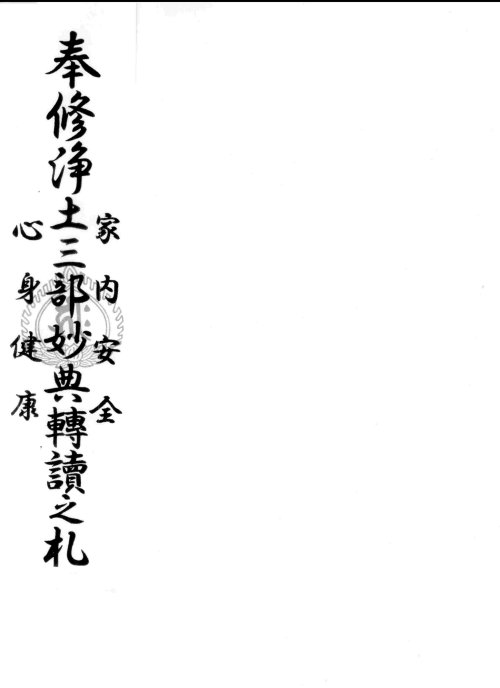 家内安全
奉修浄土三部妙典轉讀之札
心身健康